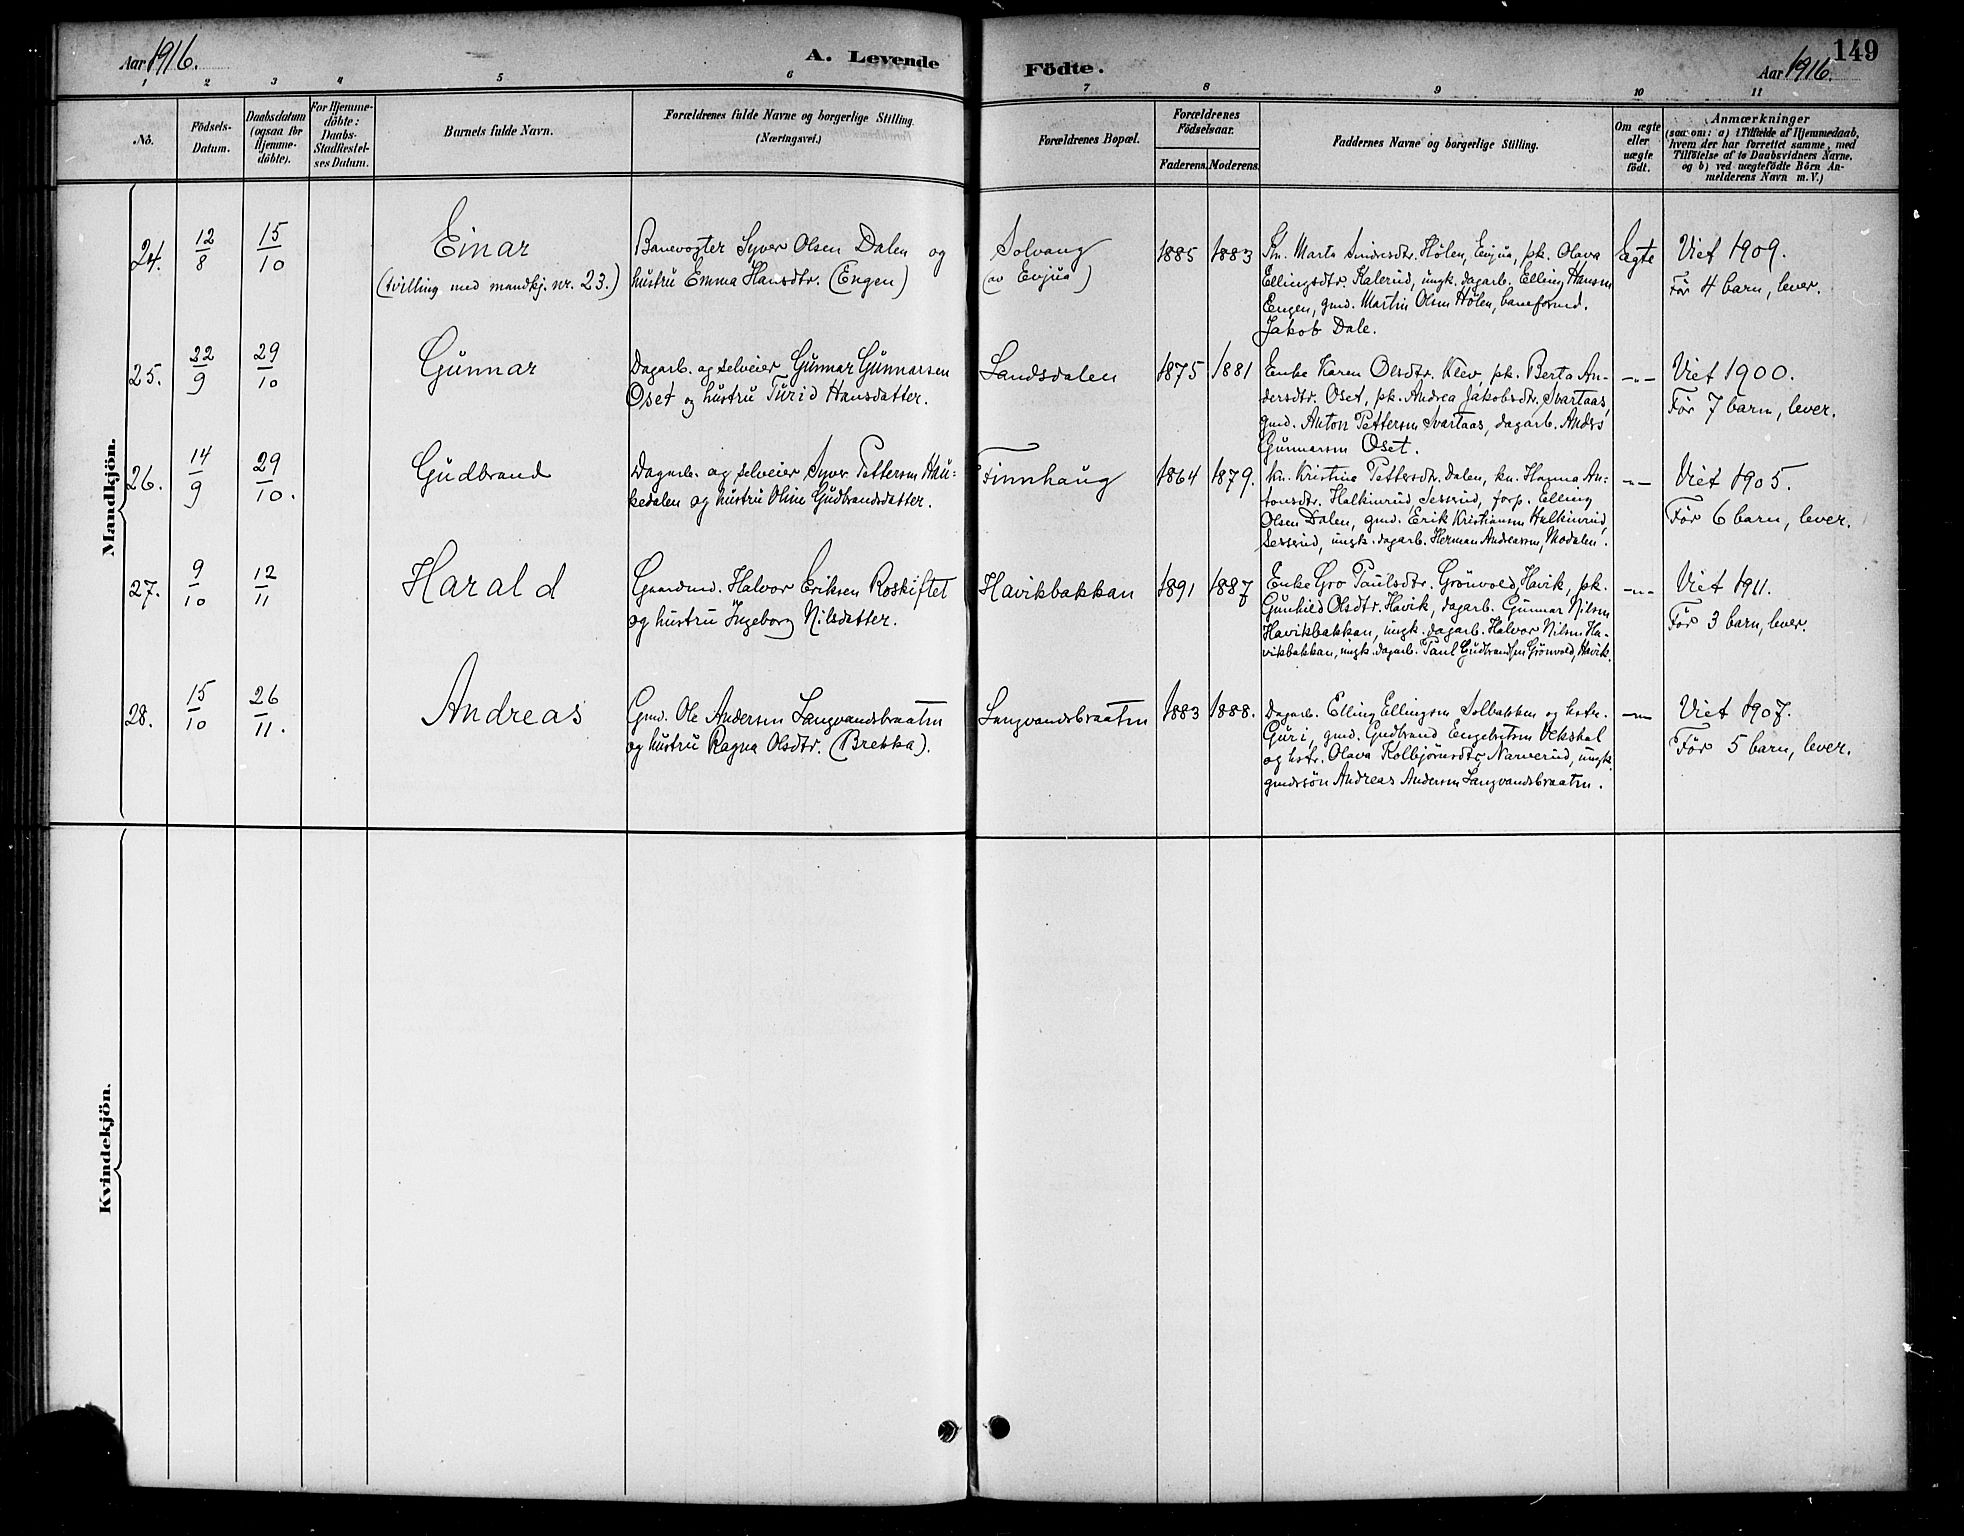 Aar 1916.
A. Levende
Födte.
149
Aar 1916.
1 2 3 4 5 6 7 8 9 10 11
No.
Födsels-
Datum.
Daabsdatum
(ogsaa for
Hjemme-
döbte).
For Hjemme-
döbte:
Daabs-
Stadfæstel-
ses Datum.
Barnets fulde Navn.
Forældrenes fulde Navne og borgerlige Stilling.
(Næringsvei.)
Forældrenes Bopæl.
Forældrenes
Födselsaar.
Faderens. Moderens.
Faddernes Navne og borgerlige Stilling.
Om ægte
eller
uægte
födt.
Anmærkninger
(saa om: a) i Tilfælde af Hjemmedaab,
hvem der har forrettet samme, med
Tilföielse af to Daabsvidners Navne,
og b) ved uægtefödte Börn An-
melderens Navn m. V.)
Mandkjön.
24.
12/8
15/10
Einar
(tvilling med mandkj. nr. 23.)
Banevogter Syver Olsen Dalen og
hustru Emma Hansdtr. (Engen)
Solvang
(av Evjua)
1885 1883
Kn. Marta Sindresdtr. Hølen, Evjua, pk. Olava
Ellingsdtr. Kalerud, ungk. dagarb. Elling Hansen
Engen, gmd. Martin Olsen Hølen, baneformd.
Jakob Dale.
Ægte
Viet 1909.
Før 4 barn, lever.
25.
22/9
29/10
Gunnar
Dagarb. og selveier Gunnar Gunnarsen
Oset og hustru Turid Hansdatter.
Landsdalen
1875 1881
Enke Karen Olsdtr. Klev, pk. Berta An-
dersdtr. Oset, pk. Andrea Jakobsdtr. Svartaas,
gmd. Anton Pettersen Svartaas, dagarb. Anders
Gunnarsen Oset.
-"-
Viet 1900.
Før 7 barn, lever.
26.
14/9
29/10.
Gudbrand
Dagarb. og selveier Syver Pettersen Hau-
kedalen og hustru Oline Gudbrandsdatter.
Finnhaug
1864 1879.
kn. Kristine Pettersdtr. Dalen, kn. Hanna An-
tonsdtr. Halkinrud, Sesserud, forp. Elling
Olsen Dalen, gmd. Erik Kristiansen Halkinrud,
Sesserud, ungk. dagarb. Herman Andreassen, Modalen.
-"-
Viet 1905.
Før 6 barn, lever.
27.
9/10
12/11
Harald
Gaardmd. Halvor Eriksen Roskiftet
og hustru Ingeborg Nilsdatter.
Havikbakkan
1891 1887
Enke Gro Paulsdtr. Grönvold, Havik, pk.
Gunhild Olsdtr. Havik, dagarb. Gunnar Nilsen
Havikbakkan, ungk. dagarb. Halvor Nilsen Ha-
vikbakkan, ungk. dagarb. Paul Gudbrandsen Grönvold, Havik.
-"-
Viet 1911.
Før 3 barn, lever.
28.
15/10
26/11.
Andreas
Gmd. Ole Andersen Langvandsbraaten
og hustru Ragna Olsdtr. (Brekka).
Langvandsbraaten
1883 1888.
Dagarb. Elling Ellingsen Solbakken og hstr.
Guri, gmd. Gudbrand Engebretsen Vekshal
og hstr. Olava Kolbjørnsdtr, Narverud, ungk.
gmdssøn Andreas Andersen Langvandsbraaten.
-"-
Viet 1907.
Før 5 barn, lever.
Kvindekjön.